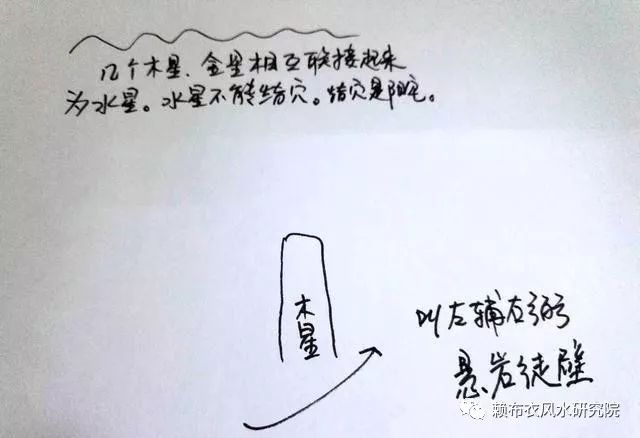 几个木星、金星相互联接起来
为水星。水星不能结穴。结穴是阳宅。
木星
叫左辅右弼
悬岩徒壁
赖布衣风水研究院